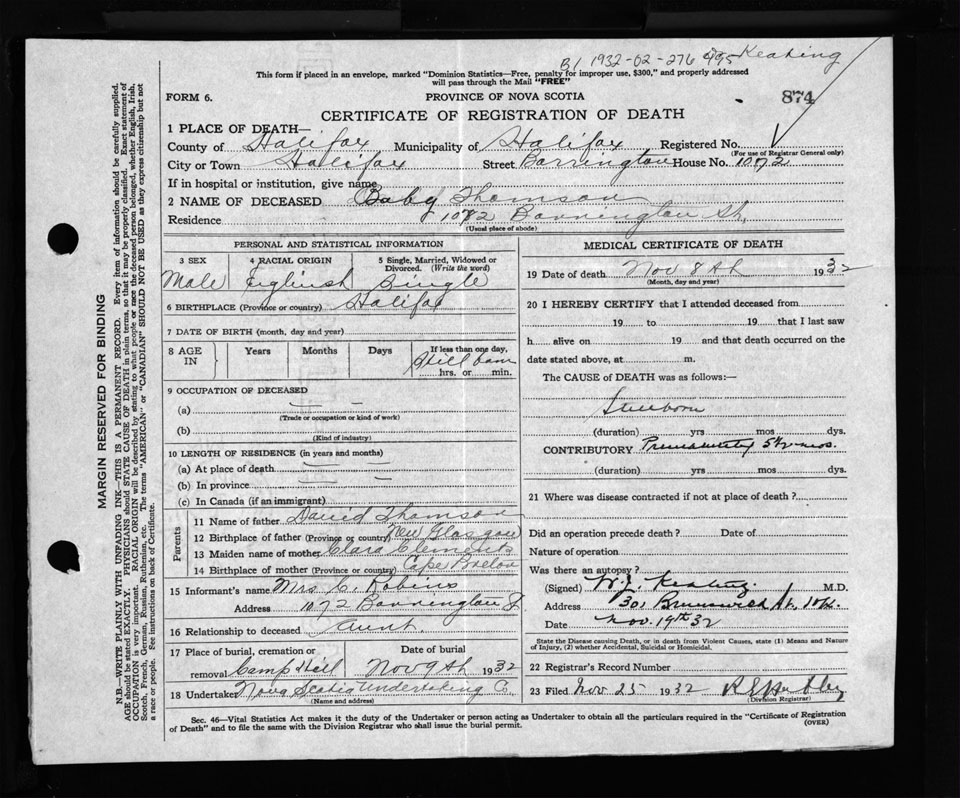 B1 1932-02-276495 Keating
This form if placed in an envelope, marked "Dominion Statistics—Free, penalty for improper use, $300," and properly addressed
will pass through the Mail "FREE"
FORM 6.
PROVINCE OF NOVA SCOTIA
874
CERTIFICATE OF REGISTRATION OF DEATH
1 PLACE OF DEATH—
County of Halifax Municipality of Halifax Registered No.
(For use of Registrar General only)
City or Town Halifax Street Barrington House No. 1072
If in hospital or institution, give name
2 NAME OF DECEASED Baby Thomson
Residence 1072 Barrington St.
(Usual place of abode)
PERSONAL AND STATISTICAL INFORMATION
3 SEX 4 RACIAL ORIGIN 5 Single, Married, Widowed or
Divorced. (Write the word)
Male English Single
6 BIRTHPLACE (Province or country) Halifax
7 DATE OF BIRTH (month, day and year)
8 AGE IN Years Months Days If less than one day,
Still born
hrs. or min.
9 OCCUPATION OF DECEASED
(a)
(Trade or occupation or kind of work)
(b)
(Kind of industry)
10 LENGTH OF RESIDENCE (in years and months)
(a) At place of death
(b) In province
(c) In Canada (if an immigrant)
Parents
11 Name of father David Thomson
12 Birthplace of father (Province or country) New Glasgow
13 Maiden name of mother Clara Clements
14 Birthplace of mother (Province or country) Cape Breton
15 Informant's name Mrs C. Robins
Address 1072 Barrington St
16 Relationship to deceased aunt
17 Place of burial, cremation or Date of burial
removal Camp Hill Nov 9th 1932
18 Undertaker Nova Scotia Undertaking Co.
(Name and address)
MEDICAL CERTIFICATE OF DEATH
19 Date of death Nov 8th 1932
(Month, day and year)
20 I HEREBY CERTIFY that I attended deceased from
19 to 19 that I last saw
h alive on 19 and that death occurred on the
date stated above, at m.
The CAUSE of DEATH was as follows:—
Stillborn
(duration) yrs mos dys.
CONTRIBUTORY Prematurity 5½ mos.
(duration) yrs mos dys.
21 Where was disease contracted if not at place of death?
Did an operation precede death? Date of
Nature of operation
Was there an autopsy?
(Signed) W.J. Keating. M.D.
Address 301 Brunswick St.
Date Nov. 19th 32
State the Disease causing Death, or in death from Violent Causes, state (1) Means and Nature
of Injury, (2) whether Accidental, Suicidal or Homicidal.
22 Registrar's Record Number
23 Filed Nov 25 1932
(Division Registrar)
Sec. 46—Vital Statistics Act makes it the duty of the Undertaker or person acting as Undertaker to obtain all the particulars required in the "Certificate of Registration
of Death" and to file the same with the Division Registrar who shall issue the burial permit.
(OVER)
MARGIN RESERVED FOR BINDING
N.B.—WRITE PLAINLY WITH UNFADING INK—THIS IS A PERMANENT RECORD. Every item of information should be carefully supplied.
AGE should be stated EXACTLY. PHYSICIANS should STATE CAUSE OF DEATH in plain terms, so that it may be properly classified. Exact statement of
OCCUPATION is very important. RACIAL ORIGIN will be described by stating to what people or race the deceased person belonged, whether English, Irish,
Scotch, French, German, Russian, Ruthenian, etc. The terms "AMERICAN" or "CANADIAN" SHOULD NOT BE USED as they express citizenship but not
a race or people. See instructions on back of Certificate.